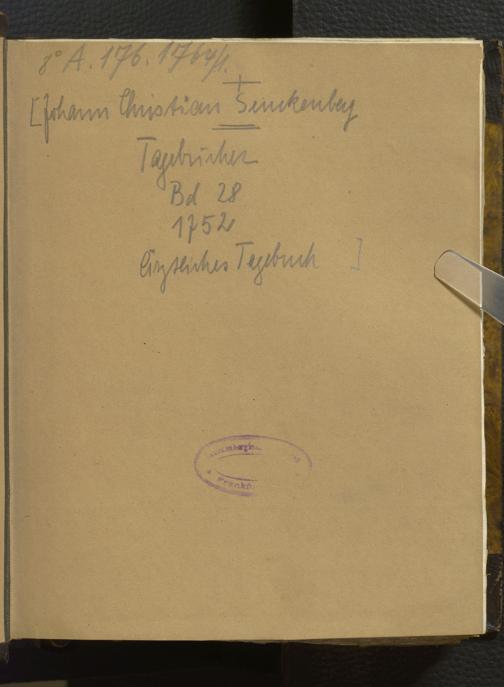 8° A. 176. 1764/1.
[Johann Christian Senckenberg
Tagebücher
Bd 28
1752
Ärztliches Tagebuch ]